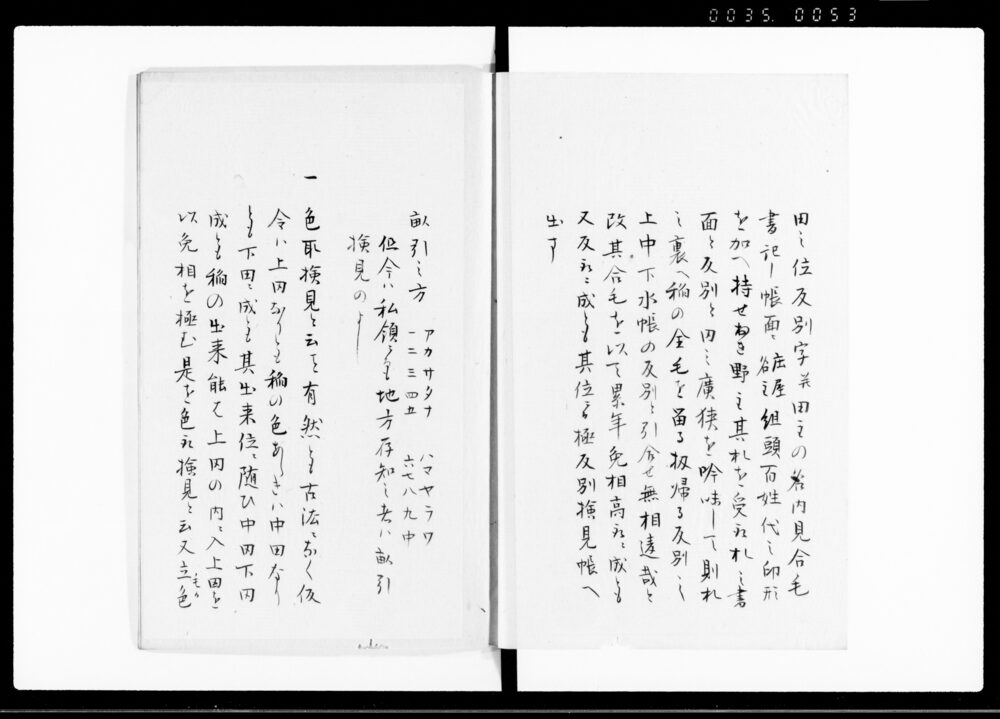 0035. 0053
田之位反別字并田主の名内見合毛
書記し帳面ニ庄屋組頭百姓代之印形
を加へ持せ野主其札を受取札之書
面と反別と田之廣狭を吟味して則札
之裏へ稲の全毛を留る扱帰る反別之
上中下水帳の反別と引合せ無相違哉と
改其合毛を以て累年免相高取ニ成とも
又反取ニ成とも其位を極反別検見帳へ
出す
畝引之方 アカサタナ ハマヤラワ
一二三四五 六七八九中
但今ハ私領とも地方存知之者ハ畝引
検見のよし
一 色取検見と云ふ有然とも古法ニなく仮
令ハ上田なりとも稲の色あしきハ中田なり
とも下田ニ成とも其出来位ニ随ひ中田下田
成とも稲の出来能ハ上田の内ニ入上田を
以免相を極む是を色取検見と云又立色